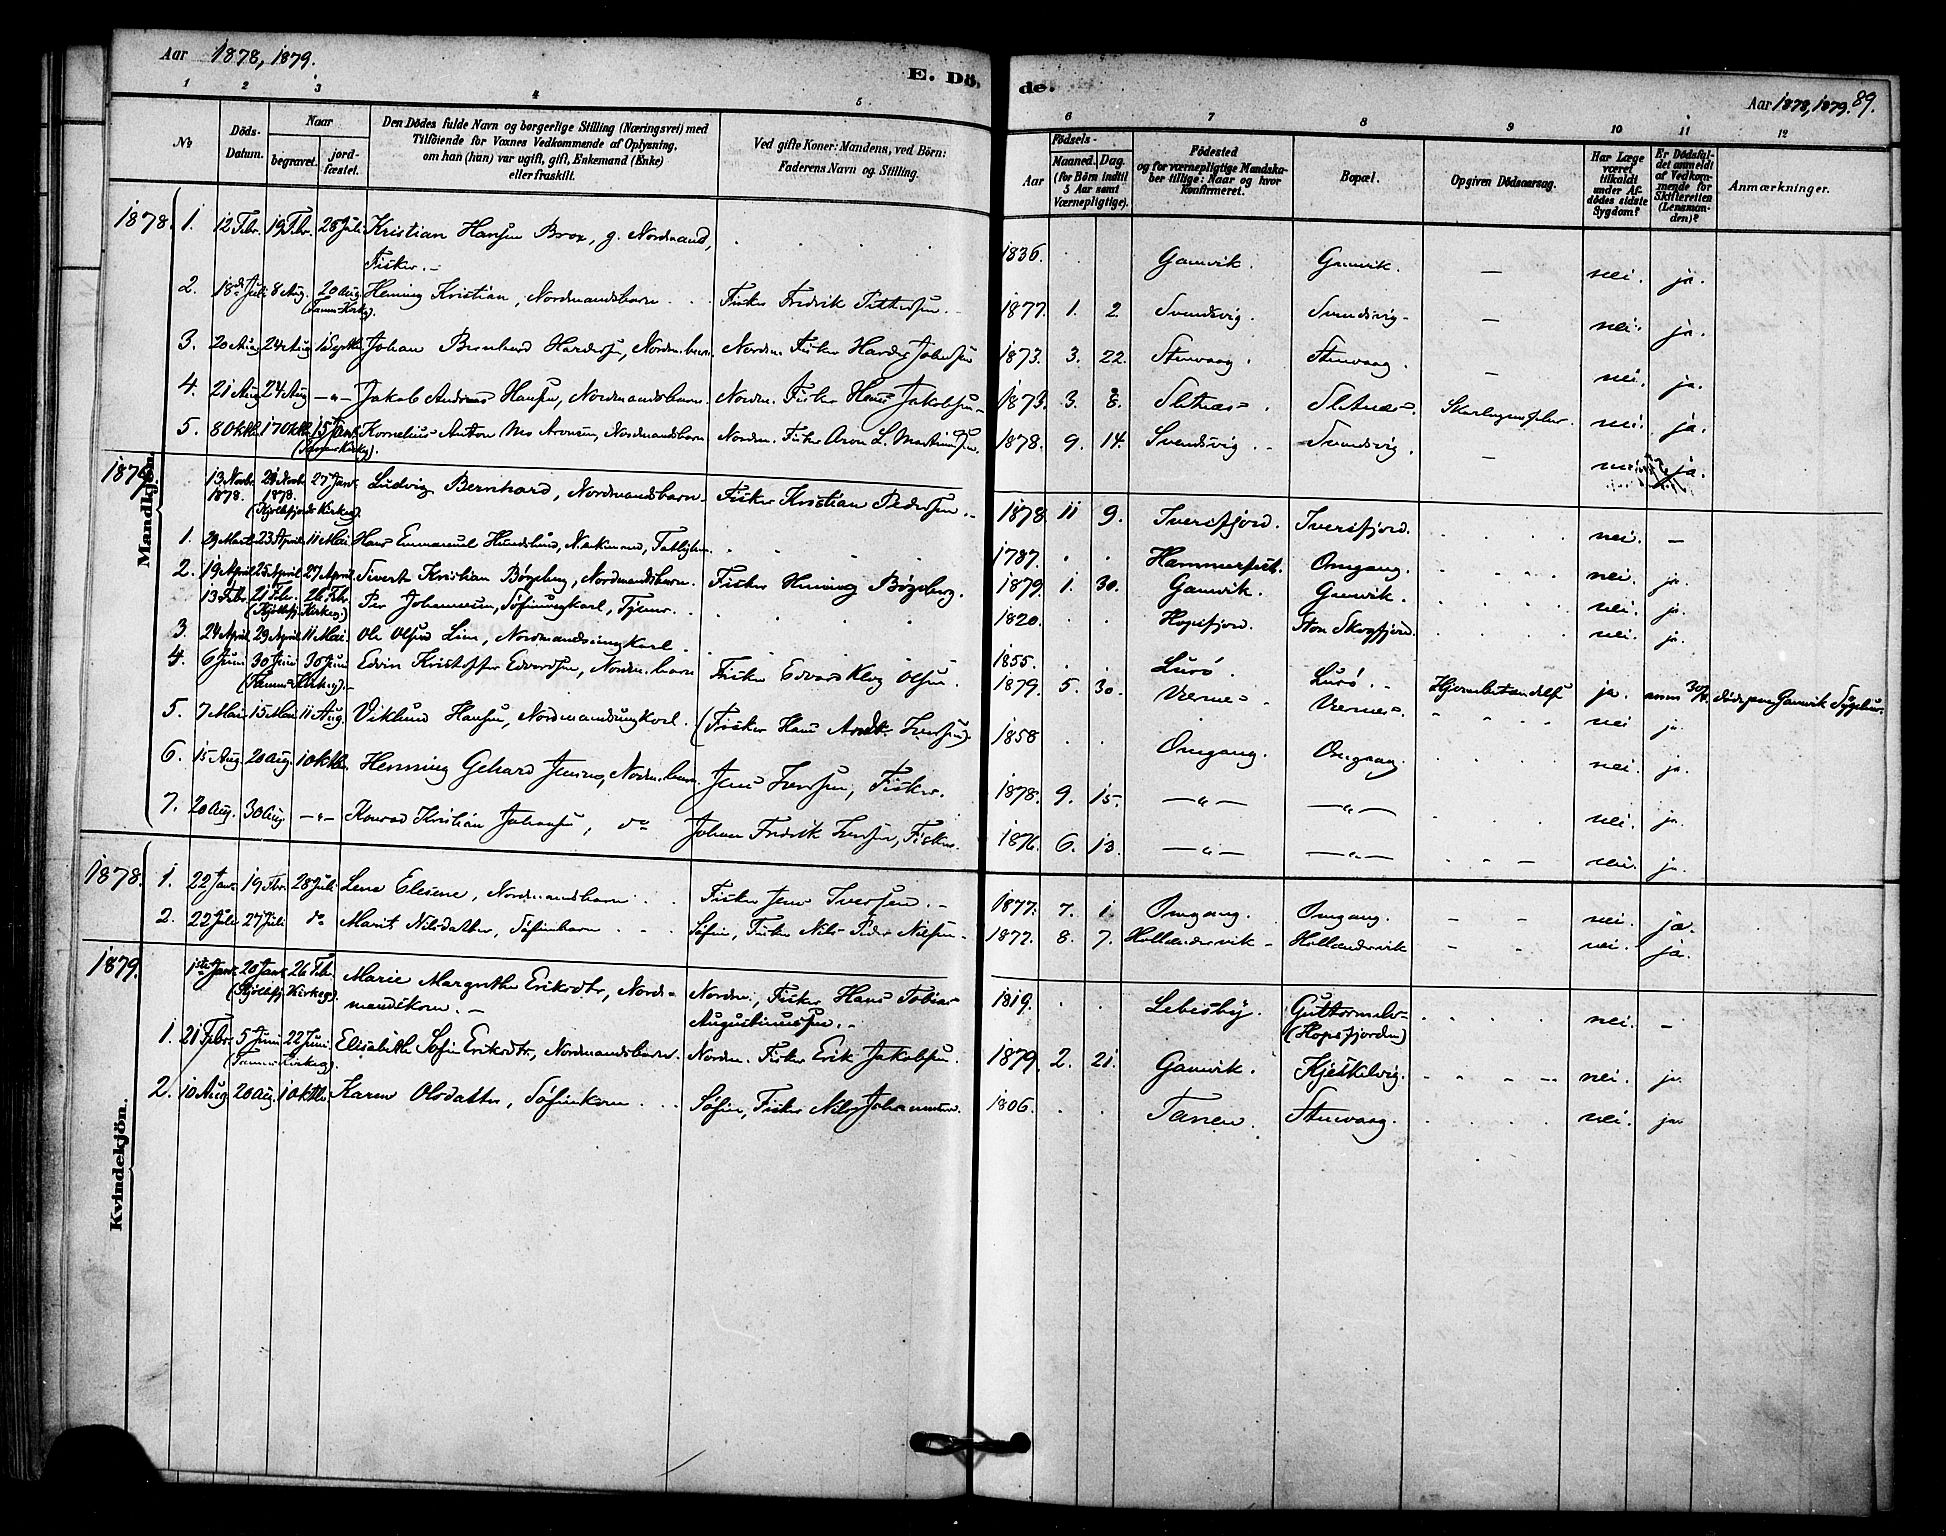 Aar 1878, 1879.
E. Dö-
de.
Aar 1878, 1879. 89.
1 2 3 4 5 6 7 8 9 10 11 12
No
Döds-Datum.
Naar
begravet.
jord-fæstet.
Den Dödes fulde Navn og borgerlige Stilling (Næringsvei) med
Tilföiende for Voxnes Vedkommende af Oplysning,
om han (hun) var ugift, gift, Enkemand (Enke)
eller fraskilt.
Ved gifte Koner: Mandens, ved Börn:
Faderens Navn og Stilling.
Födsels-
Aar
Maaned. Dag.
(for Börn indtil
5 Aar samt
Værnepligtige).
Födested
og for værnepligtige Mandska-
ber tillige: Naar og hvor
konfirmeret.
Bopæl.
Opgiven Dödsaarsag.
Har Læge
været
tilkaldt
under Af-
dödes sidste
Sygdom?
Er Dödsfal-
det anmeldt
af Vedkom-
mende for
Skifteretten
(Lensman-
den)?
Anmærkninger.
Mandkjön.
1878. 1. 12 Febr. 19 Febr. 28 Juli Kristian Hansen Brox, g. Nordmand, 1836. Gamvik. Gamvik. — nei. ja.
Fisker. —
2. 18de Juli 8 Aug. 20 Aug. Heming Kristian, Nordmandsbarn. Fisker Fredrik Pettersen. 1877. 1. 2. Svendsvig. Svendsvig. — nei. ja.
3. 20 Aug 24 Aug 1 Septbr. Johan Bernhard Hardersen, Nordm.barn. Nordm. Fisker Harder Johnsen 1873. 3. 22. Stenvaag. Stenvaag. — nei. ja.
4. 21 Aug 24 Aug —"— Jakob Andreas Hansen, Nordmandsbarn. Nordm. Fisker Hans Jakobsen 1873. 3. 8. Sletnes. Sletnes. nei. ja.
5. 8 Oktb. 17 Oktb. 15 Jan. Kornelius Anton Aronsen, Nordmandsbarn Nordm. Fisker Aron L. Martinussen. 1878. 9. 14. Svendsvig. Svendsvig — nei ja.
1879. 13 Novbr. 1878. 24 Novbr. 1878. 27 Jan. Ludvig Bernhard, Nordmandsbarn. Fisker Kristian Pedersen. 1878 11 9. Iversfjord. Iversfjord. nei. —
(Kjöllefjords Kirkeg).
1. 29 Marts 23 April 11 Mai Hans Emmanuel Hundslund, Nordmand, Fattiglem. 1787. Hammerfest. Omgang. nei. ja.
2. 19 April 25 April 27 April Sivert Kristian Bøgeberg, Nordmandsbarn. Fisker Hening Bøgeberg. 1879. 1. 30. Gamvik. Gamvik. nei. ja.
13 Febr. 21 Febr. 26 Febr. Per Johannesen, Søfinungkarl, Tjener. 1820. Hopsfjord. Store Skogfjord. nei. ja.
(Kjöllefj. Kirkeg)
3. 24 April 29 April 11 Mai. Ole Olsen Lien, Nordmandsungkarl. 1855. Lurö. Lurö. Hjernebetændelse ja. anm 30/4. död paa Gamvik Sygehus.
4. 6 Juni 30 Juni 30 Juni Edvin Kristoffer Edvardsen, Nordm.barn Fisker Edvard Klog Olsen. 1879. 5. 30. Værnes. Værnes. nei ja.
5. 7 Mai 15 Mai 11 Aug. Viklund Hansen, Nordmandsungkarl. (Fisker Hans Arndt Iversen). 1858 Omgang. Omgang. nei. ja.
6. 15 Aug. 20 Aug. 1 Oktbr. Henning Gehard Jensen, Nordm.barn. Jens Iversen, Fisker. 1878. 9. 15. —"— —"— nei. ja.
7. 20 Aug. 30 Aug —"— Konrad Kristian Johansen, do Johan Fredrik Iversen, Fisker. 1876. 6. 13. —"— —"— nei. ja.
Kvindekjön.
1878. 1. 22 Jan. 19 Febr. 28 Juli Lene Elesene, Nordmandsbarn. Fisker Jens Iversen. 1877. 7. 1. Omgang. Omgang. nei. ja.
2. 22 Juli 27 Juli do Marit Nilsdatter, Søfinbarn. Søfin, Fisker Nils Peder Nilsen. 1877. 8. 7. Hollændervik Hollændervik nei. ja.
1879. 1ste Jan. 20 Jan. 26 Febr. Marie Margrethe Eriksdtr, Nord- Nordm., Fisker Hans Tobias 1819. Lebesby. nei. —
(Kjöllefj. Kirkeg). mandskone. — Augustinussen. (Hopsfjorden)
1. 21 Febr. 5 Juni 22 Juni Elisabeth Sofie Eriksdtr., Nordmandsbarn. Nordm. Fisker Erik Jakobsen. 1879. 2. 21. Gamvik. Kjeskelvig. nei. ja.
2. 10 Aug 20 Aug. 1 Oktbr. Karen Olsdatter, Søfinkone. Søfin, Fisker Nils Johannesen. 1806. Tanen. Stenvaag. nei. ja.